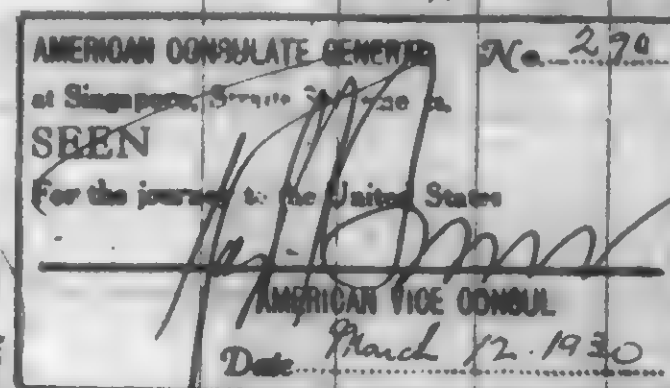 AMERICAN CONSULATE GENERAL No. 290
at Singapore, Straits Settlements,
SEEN
For the journey to the United States
AMERICAN VICE CONSUL
Date March 12. 1930